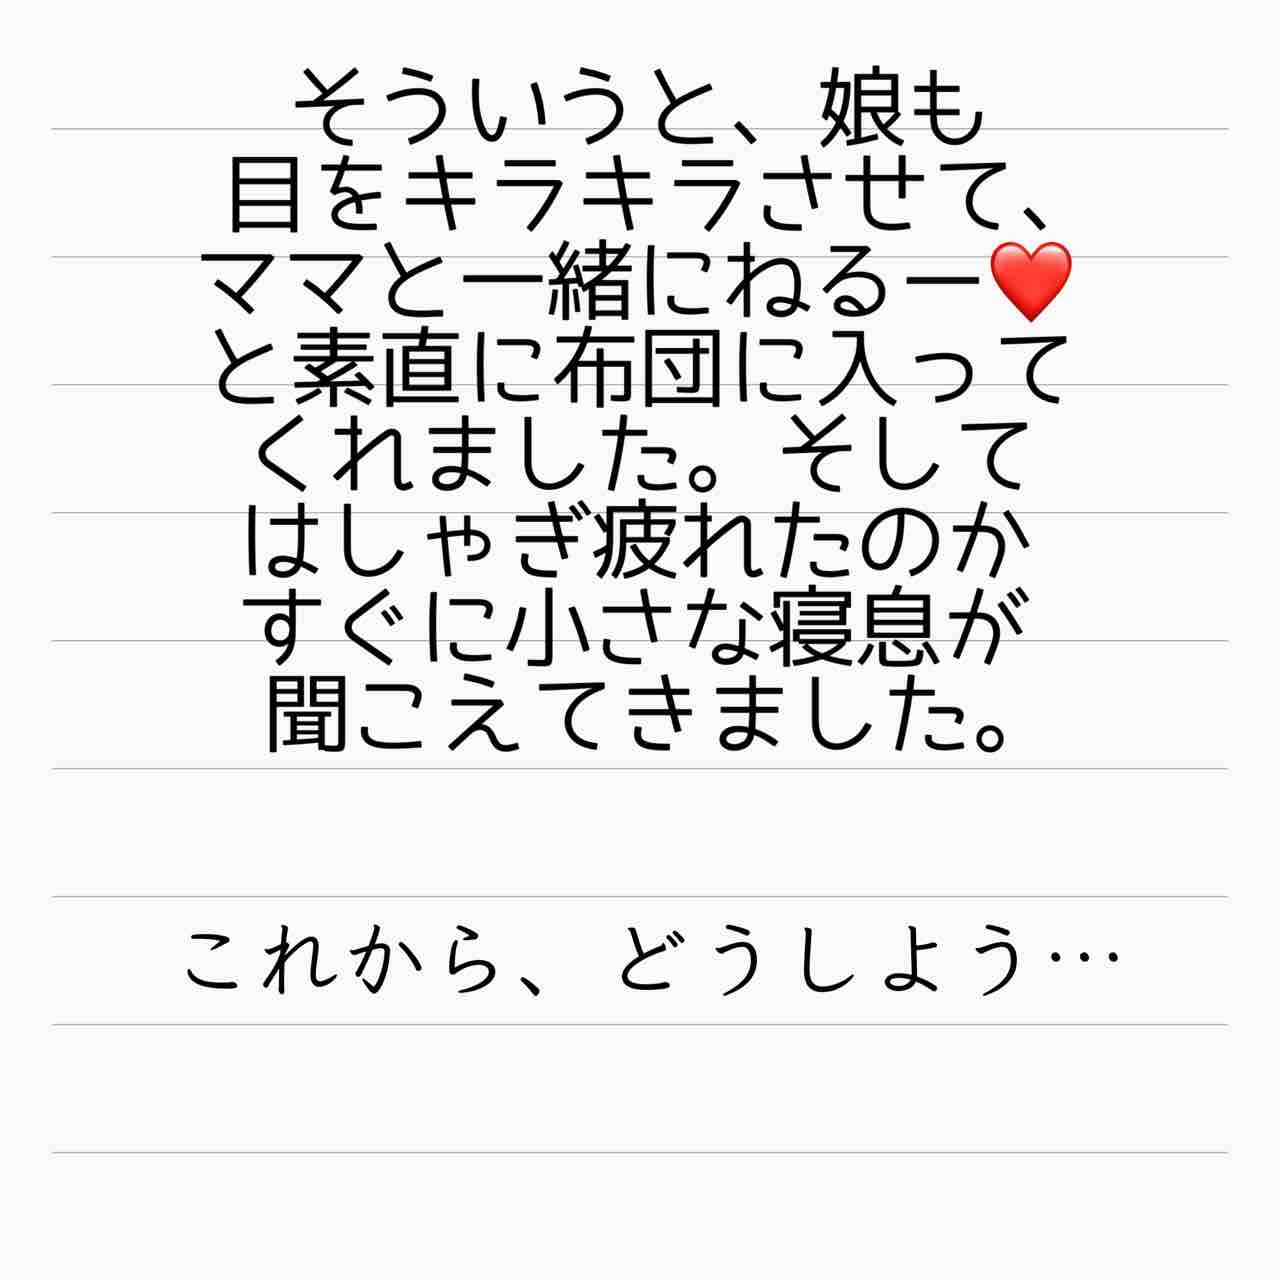 そういうと、娘も
目をキラキラさせて、
ママと一緒にねるー❤️
と素直に布団に入って
くれました。そして
はしゃぎ疲れたのか
すぐに小さな寝息が
聞こえてきました。
これから、どうしよう…